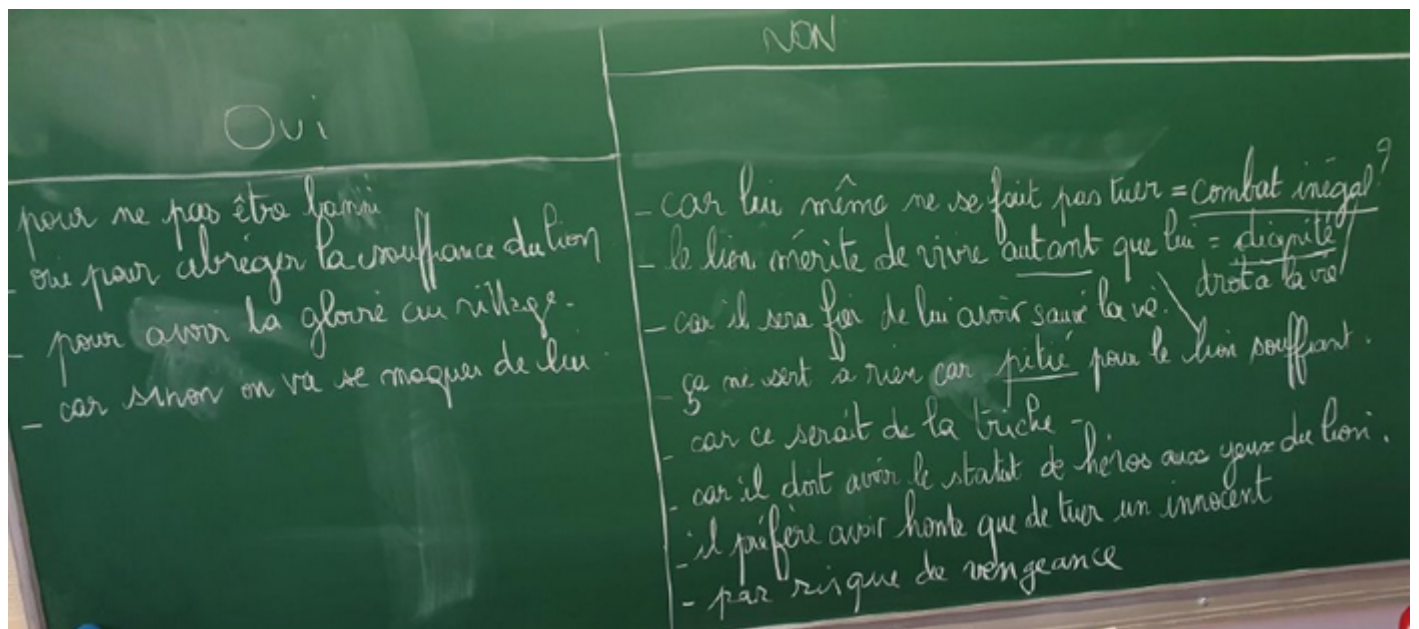 Oui
pour ne pas être banni
- oui pour abréger la souffrance du lion
- pour avoir la gloire au village.
- car sinon on va se moquer de lui
NON
- car lui même ne se fait pas tuer = combat inégal ?
- le lion mérite de vivre autant que lui = dignité
droit à la vie
- car il sera fier de lui avoir sauvé la vie.
- ça ne sert à rien car pitié pour le lion souffrant.
- car ce serait de la triche -
- car il doit avoir le statut de héros aux yeux du lion.
- il préfère avoir honte que de tuer un innocent
- par risque de vengeance